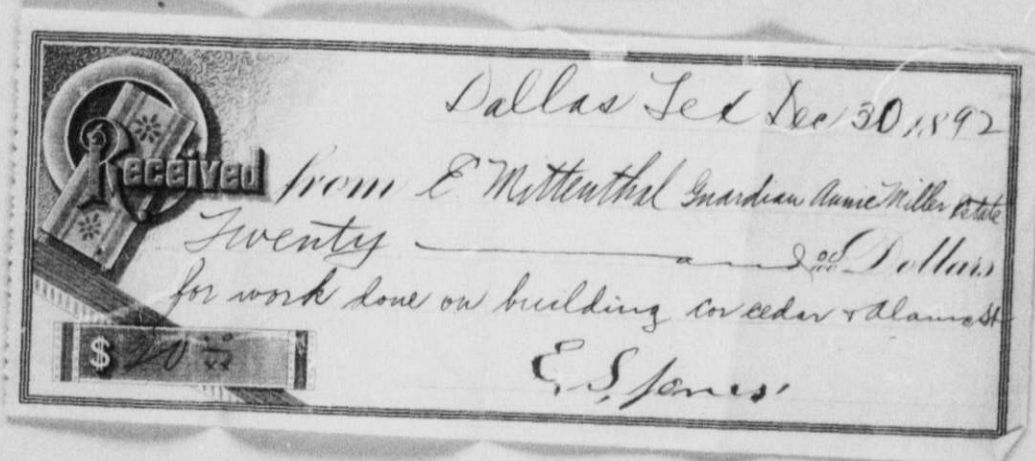 Dallas Tex Dec 30, 1892
Received from E Mittenthal Guardian Annie Miller Estate
Twenty and 00/100 Dollars
for work done on building cor cedar & Alamo St
$ 20
E. S. Jones